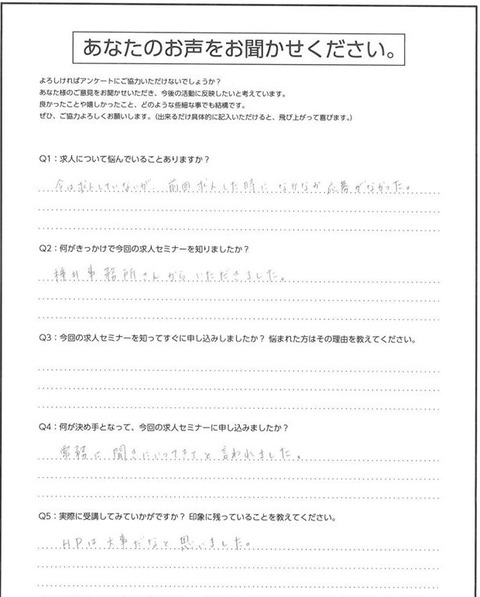 あなたのお声をお聞かせください。
よろしければアンケートにご協力いただけないでしょうか？
あなた様のご意見をお聞かせいただき、今後の活動に反映したいと考えています。
良かったことや嬉しかったこと、どのような些細な事でも結構です。
ぜひ、ご協力よろしくお願いします。（出来るだけ具体的に記入いただけると、飛び上がって喜びます。）
Q1：求人について悩んでいることありますか？
今は求人していないが、前回求人した時に なかなか応募がなかった。
Q2：何がきっかけで今回の求人セミナーを知りましたか？
事務所さんからいただきました。
Q3：今回の求人セミナーを知ってすぐに申し込みしましたか？ 悩まれた方はその理由を教えてください。
Q4：何が決め手となって、今回の求人セミナーに申し込みましたか？
常務に 聞きにいってきてと 言われました。
Q5：実際に受講してみていかがですか？ 印象に残っていることを教えてください。
HPは大事だなと思いました。